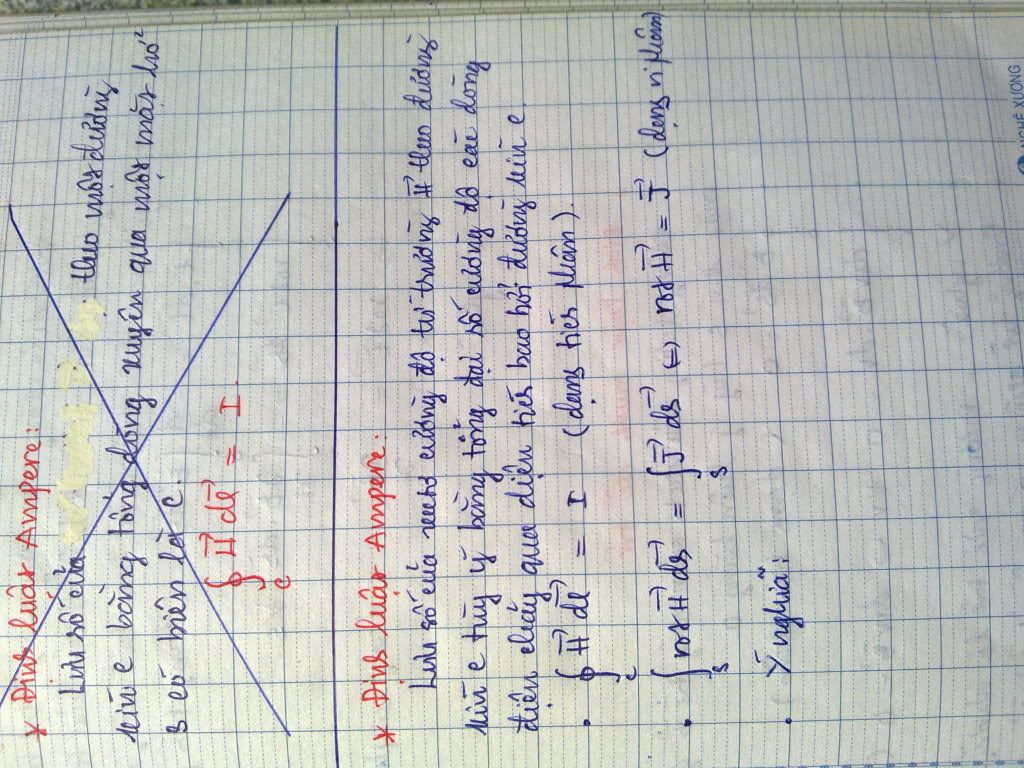 * Định luật Ampere:
Lưu số của theo một đường
kín C bằng tổng dòng xuyên qua một mặt số
S có biên là C.
∮_C H⃗ dl⃗ = I
* Định luật Ampere:
Lưu số của vectơ cường độ từ trường H⃗ theo đường
kín C tùy ý bằng tổng đại số cường độ các dòng
điện chảy qua diện tích bao bởi đường kín C.
• ∮_C H⃗ dl⃗ = I (dạng tích phân).
• ∫_S rot H⃗ ds⃗ = ∫_S J⃗ ds⃗ ⇔ rot H⃗ = J⃗ (dạng vi phân)
• Ý nghĩa:
NGHĒ XƯƠNG